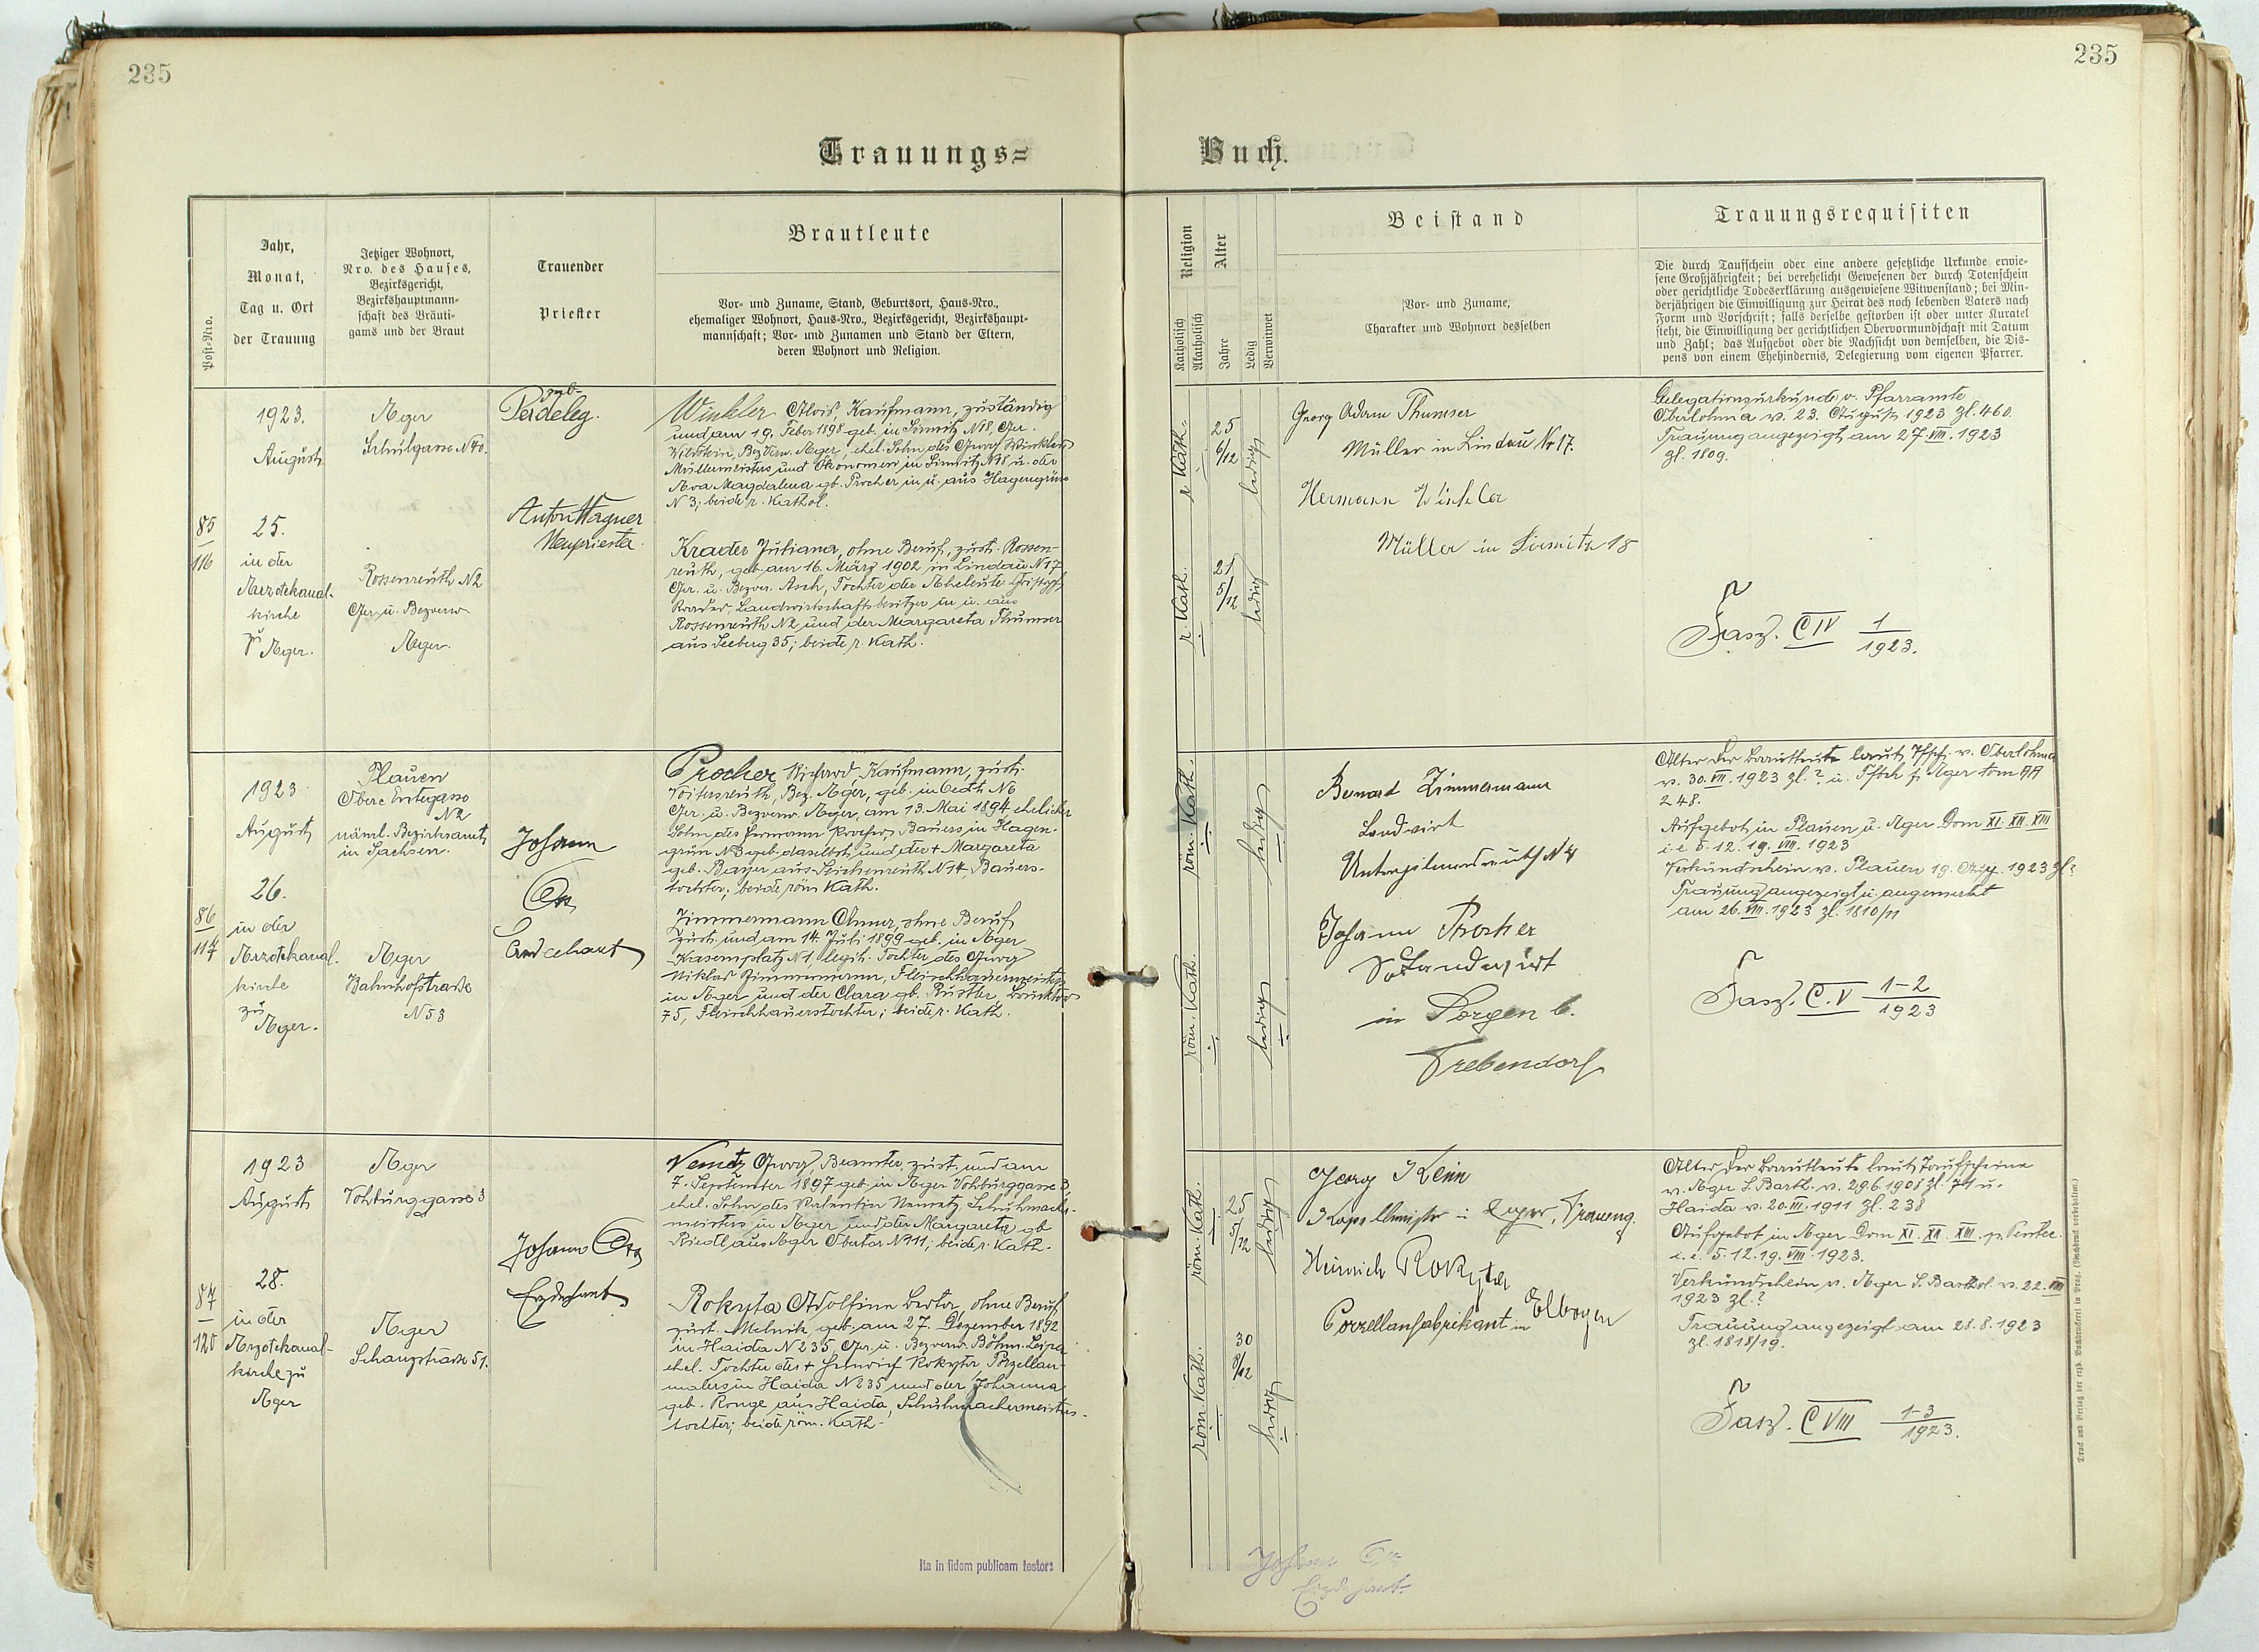 235
235
Trauungs=
Buch.
Post=Nro.
Jahr,
Monat,
Tag u. Ort
der Trauung
Jetziger Wohnort,
Nro. des Hauses,
Bezirksgericht,
Bezirkshauptmann=
schaft des Bräuti=
gams und der Braut
Trauender
Priester
Brautleute
Vor= und Zuname, Stand, Geburtsort, Haus=Nro.,
ehemaliger Wohnort, Haus=Nro., Bezirksgericht, Bezirkshaupt=
mannschaft; Vor= und Zunamen und Stand der Eltern,
deren Wohnort und Religion.
Religion
Katholisch
Akatholisch
Alter
Jahre
Ledig
Verwitwet
Beistand
Vor= und Zuname,
Charakter und Wohnort desselben
Trauungsrequisiten
Die durch Taufschein oder eine andere gesetzliche Urkunde erwie=
sene Großjährigkeit; bei verehelicht Gewesenen der durch Totenschein
oder gerichtliche Todeserklärung ausgewiesene Witwenstand; bei Min=
derjährigen die Einwilligung zur Heirat des noch lebenden Vaters nach
Form und Vorschrift; falls derselbe gestorben ist oder unter Kuratel
steht, die Einwilligung der gerichtlichen Obervormundschaft mit Datum
und Zahl; das Aufgebot oder die Nachsicht von demselben, die Dis=
pens von einem Ehehindernis, Delegierung vom eigenen Pfarrer.
85
116
1923.
August
25.
in der
Aerzdekanal-
kirche
zu Aeger.
Aeger
Schulgasse N 40.
Rossenreuth N 2
Ger. u. Bezverw.
Aeger.
Anton Wagner
Neupriester.
Winkler Alois, Kaufmann, zuständig
und am 19. Feber 1898 geb. in Sirmitz N 18, Ger.
Wildstein, Bez.Verw. Aeger, ehel. Sohn des Georg Winklers
Müllermeisters und Ökonomen in Sirmitz N 18 u. der
Aeva Magdalena gb. Procher in u. aus Hagengrün
N 3; beide r. kathol.
Krader Juliana, ohne Beruf, zust. Rossen-
reuth, geb. am 16. März 1902 in Lindau N 17
Ger. u. Bezver. Asch, Tochter der Aheleute Christoph
Krader, Landwirtschaftsbesitzer in u. aus
Rossenreuth N 2 und der Margareta Thumser
aus Seeberg 35; beide r. Kath.
r. Kath.
25
6/12
ledig
r. Kath.
21
5/12
ledig
Georg Adam Thumser
Müller in Lindau Nr 17.
Hermann Winkler
Müller in Sirmitz 18
Delegationsurkunde v. Pfarramte
Oberlohma v. 23. August 1923 zl. 460.
Trauung angezeigt am 27. VIII. 1923
zl. 1809.
Fasz. C IV 1
1923.
86
117
1923
August
26.
in der
Aerzdekanal.
kirche
zu
Aeger.
Plauen
N 2
in Sachsen.
Aeger
Bahnhofstraße
N 53
Johann
Erzdechant
Procher Richard, Kaufmann, zust.
Voitersreuth, Bez. Aeger, geb. in Oedt N 6
Ger. u. Bezverw. Aeger, am 13. Mai 1894 ehelicher
Sohn des Hermann Procher, Bauers in Hagen-
grün N 3 geb. daselbst, und der + Margareta
geb. Bayer aus N 14, Bauers-
tochter; beide röm. Kath.
Zimmermann Anna, ohne Beruf
zust. und am 14. Juli 1899 geb. in Aeger
Kasernplatz N 1, legit. Tochter des Georg
Niklas Zimmermann, Fleischhauermeisters
in Aeger und der Clara gb. Rustler,
75, Fleischhauerstochter; beide r. Kath.
röm. Kath.
ledig
röm. Kath.
ledig
Bernard Zimmermann
Landwirt
N 4
Johann Procher
in Sorgen b.
Trebendorf
Alter der Brautleute laut Tfsch. v. Oberlohma
v. 30. VII. 1923 zl. ? u. Tftch f. Aeger tom AA
248.
Aufgebot in Plauen u. Aeger Dom XI. XII. XIII
i.e. 5. 12. 19. VIII. 1923
Verkündschein v. Plauen 19. Aug. 1923 zl ?
Trauung angezeigt u. angemerkt
am 26. VIII. 1923 zl. 1810/11
Fasz. C. V 1-2
1923
87
120
1923
August
28.
in der
Aerzdekanal-
kirche zu
Aeger
Aeger
Vohburggasse 3
Aeger
Schanzstraße 51.
Johann
Erzdechant
Nemetz Georg, Beamter, zust. und am
7. September 1897 geb. in Aeger Vohburggasse 3,
ehel. Sohn des Valentin Nemetz, Schuhmacher-
meisters in Aeger und der Margareta gb
Riedl aus Aeger Obertor N 11; beide r. Kath.
Rokyta Adolfine Berta, ohne Beruf
zust. Melnik, geb. am 27. Dezember 1892
in Haida N 235, Ger. u. Bezverw. Böhm. Leipa
ehel. Tochter des + Heinrich Rokyta Porzellan-
malers in Haida N 235 und der Johanna
geb. Ronge aus Haida, Schuhmachermeisters-
tochter; beide röm. Kath.
röm. Kath.
25
5/12
ledig
röm. Kath.
30
8/12
ledig
Georg Kenn
Kapellmeister in Eger,
Heinrich Rokyta
Porzellanfabrikant in Elbogen
Alter der Brautleute laut Taufscheine
v. Aeger S. Barth. v. 29.6.1908 zl. 71 u.
Haida v. 20. III. 1911 zl. 238
Aufgebot in Aeger Dom XI. XII. XIII. p. Pentec.
i.e. 5. 12. 19. VIII. 1923.
Verkündschein v. Aeger S. Barthol. v. 22. VIII
1923 zl. ?
Trauung angezeigt am 28. 8. 1923
zl. 1818/19.
Fasz. C VIII 1-3
1923.
Ita in fidem publicam testor:
Johann
Erzdechant
Druck und Verlag der erzb. Buchdruckerei in Prag. (Nachdruck verboten.)